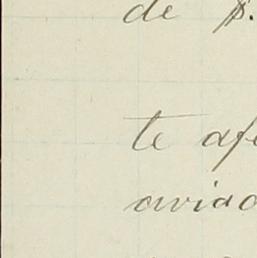 de $.
te afe
aviad